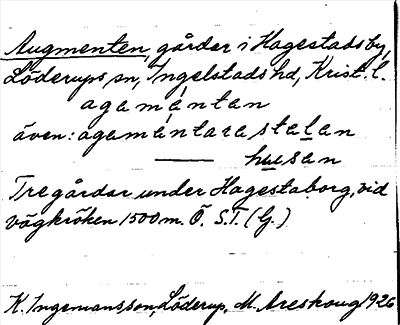 Augmenten, gårder i Hagestads by,
Löderups sn, Ingelstads hd, Krist. l.
agamántan
även: agamántarastalan
——— husan
Tre gårdar under Hagestaborg, vid
vägkröken 1500 m. Ö. S.T. (G.)
K. Ingemansson, Löderup. M. Areskoug 1926